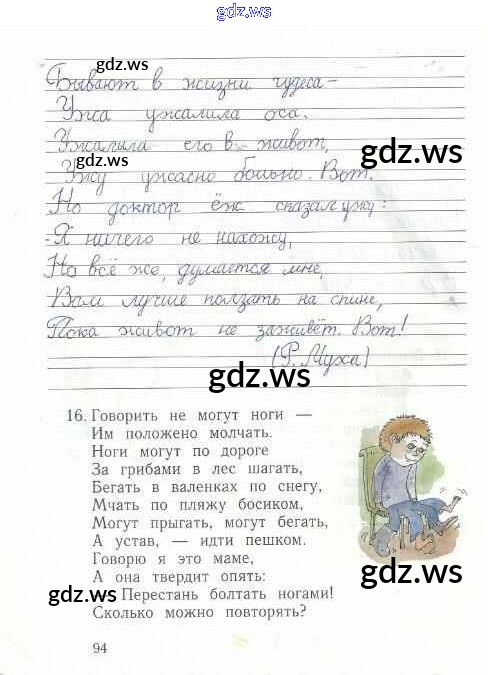 gdz.ws
gdz.ws
Бывают в жизни чудеса –
Ужа ужалила оса.
Ужалила его в живот,
gdz.ws
gdz.ws
Ужу ужасно больно. Вот.
Но доктор ёж сказал ужу:
- Я ничего не нахожу,
Но всё же, думается мне,
Вам лучше ползать на спине,
Пока живот не заживёт. Вот!
(Р. Муха)
gdz.ws
16. Говорить не могут ноги —
Им положено молчать.
Ноги могут по дороге
За грибами в лес шагать,
Бегать в валенках по снегу,
Мчать по пляжу босиком,
Могут прыгать, могут бегать,
А устав, — идти пешком.
Говорю я это маме,
А она твердит опять:
gdz.ws
Перестань болтать ногами!
gdz.ws
Сколько можно повторять?
94